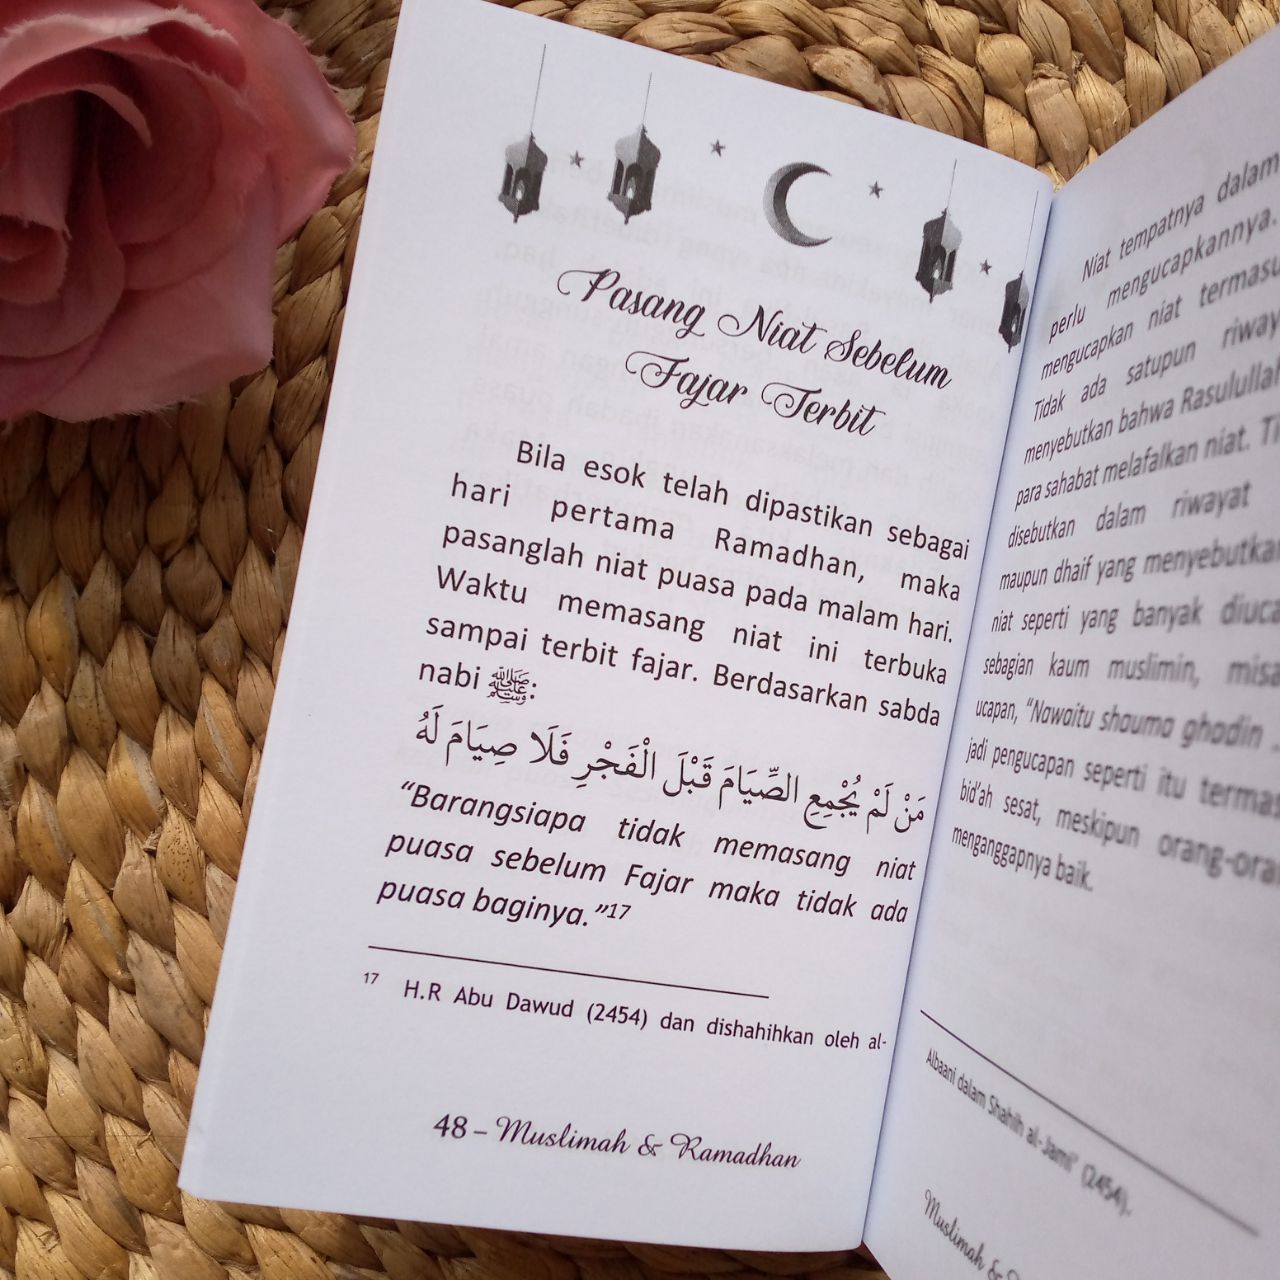 Pasang Niat Sebelum
Fajar Terbit
Bila esok telah dipastikan sebagai
hari pertama Ramadhan, maka
pasanglah niat puasa pada malam hari.
Waktu memasang niat ini terbuka
sampai terbit fajar. Berdasarkan sabda
nabi ﷺ:
مَنْ لَمْ يُجْمِعِ الصِّيَامَ قَبْلَ الْفَجْرِ فَلَا صِيَامَ لَهُ
“Barangsiapa tidak memasang niat
puasa sebelum Fajar maka tidak ada
puasa baginya.”17
17 H.R Abu Dawud (2454) dan dishahihkan oleh al-
48 – Muslimah & Ramadhan
Niat tempatnya dalam
perlu mengucapkannya.
mengucapkan niat
Tidak ada satupun
menyebutkan bahwa
para sahabat melafalkan niat.
disebutkan dalam riwayat
maupun dhaif yang
niat seperti yang banyak
sebagian kaum muslimin,
ucapan, “Nawaitu shauma ghadin
jadi pengucapan seperti itu
bid'ah sesat, meskipun
menganggapnya baik.
Albaani dalam Shahih al-Jami' (2454).
Muslimah &